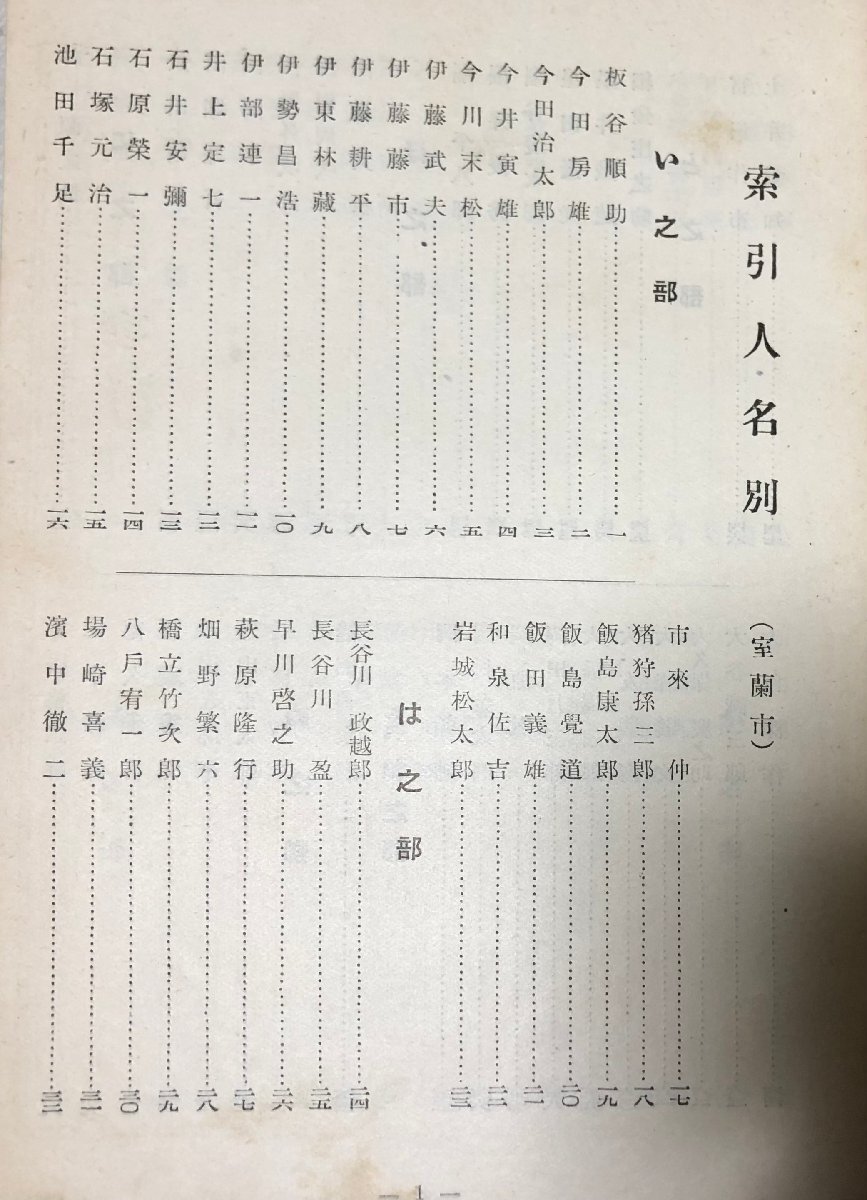 索引人名別
(室蘭市)
い之部
板谷順助……一
今田房雄……二
今田治太郎……三
今井寅雄……四
今川末松……五
伊藤武夫……六
伊藤藤市……七
伊藤耕平……八
伊東林藏……九
伊勢昌浩……一〇
伊部連一……一一
井上定七……一二
石井安彌……一三
石原榮一……一四
石塚元治……一五
池田千足……一六
市來仲……一七
猪狩孫三郎……一八
飯島康太郎……一九
飯島覺道……二〇
飯田義雄……二一
和泉佐吉……二二
岩城松太郎……二三
は之部
長谷川政越郎……二四
長谷川盈……二五
早川啓之助……二六
萩原隆行……二七
畑野繁六……二八
橋立竹次郎……二九
八戶宥一郎……三〇
場崎喜義……三一
濱中徹二……三二
— 1 —